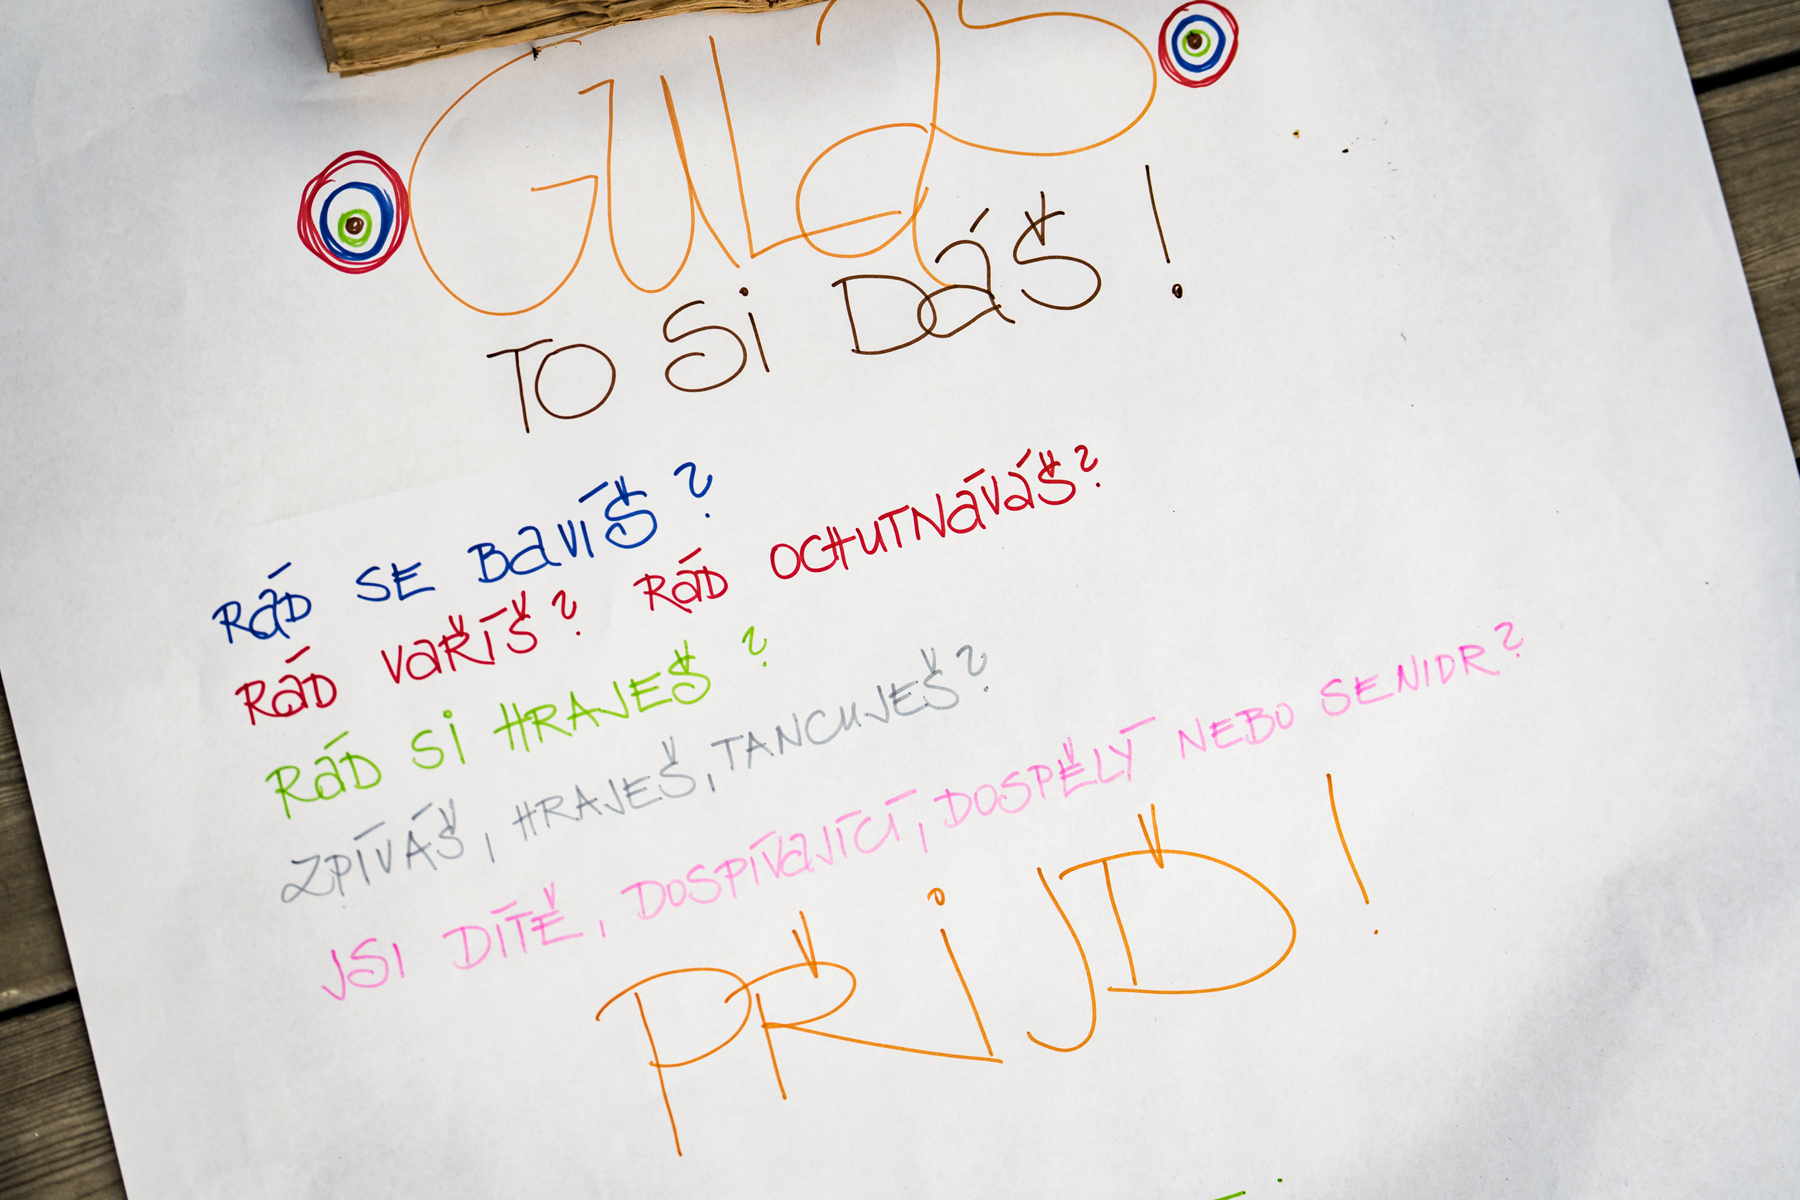 GULaS
TO Si DáŠ!
RÁD SE BaVÍŠ?
RÁD VaŘÍŠ? RÁD OCHUTNáVáŠ?
RÁD Si HRAJEŠ?
ZPÍVÁŠ, HRAJEŠ, TANCUJEŠ?
JSI DÍTĚ, DOSPÍVaJÍCÍ, DOSPĚLÝ NEBO SENIOR?
PŘiJĎ!